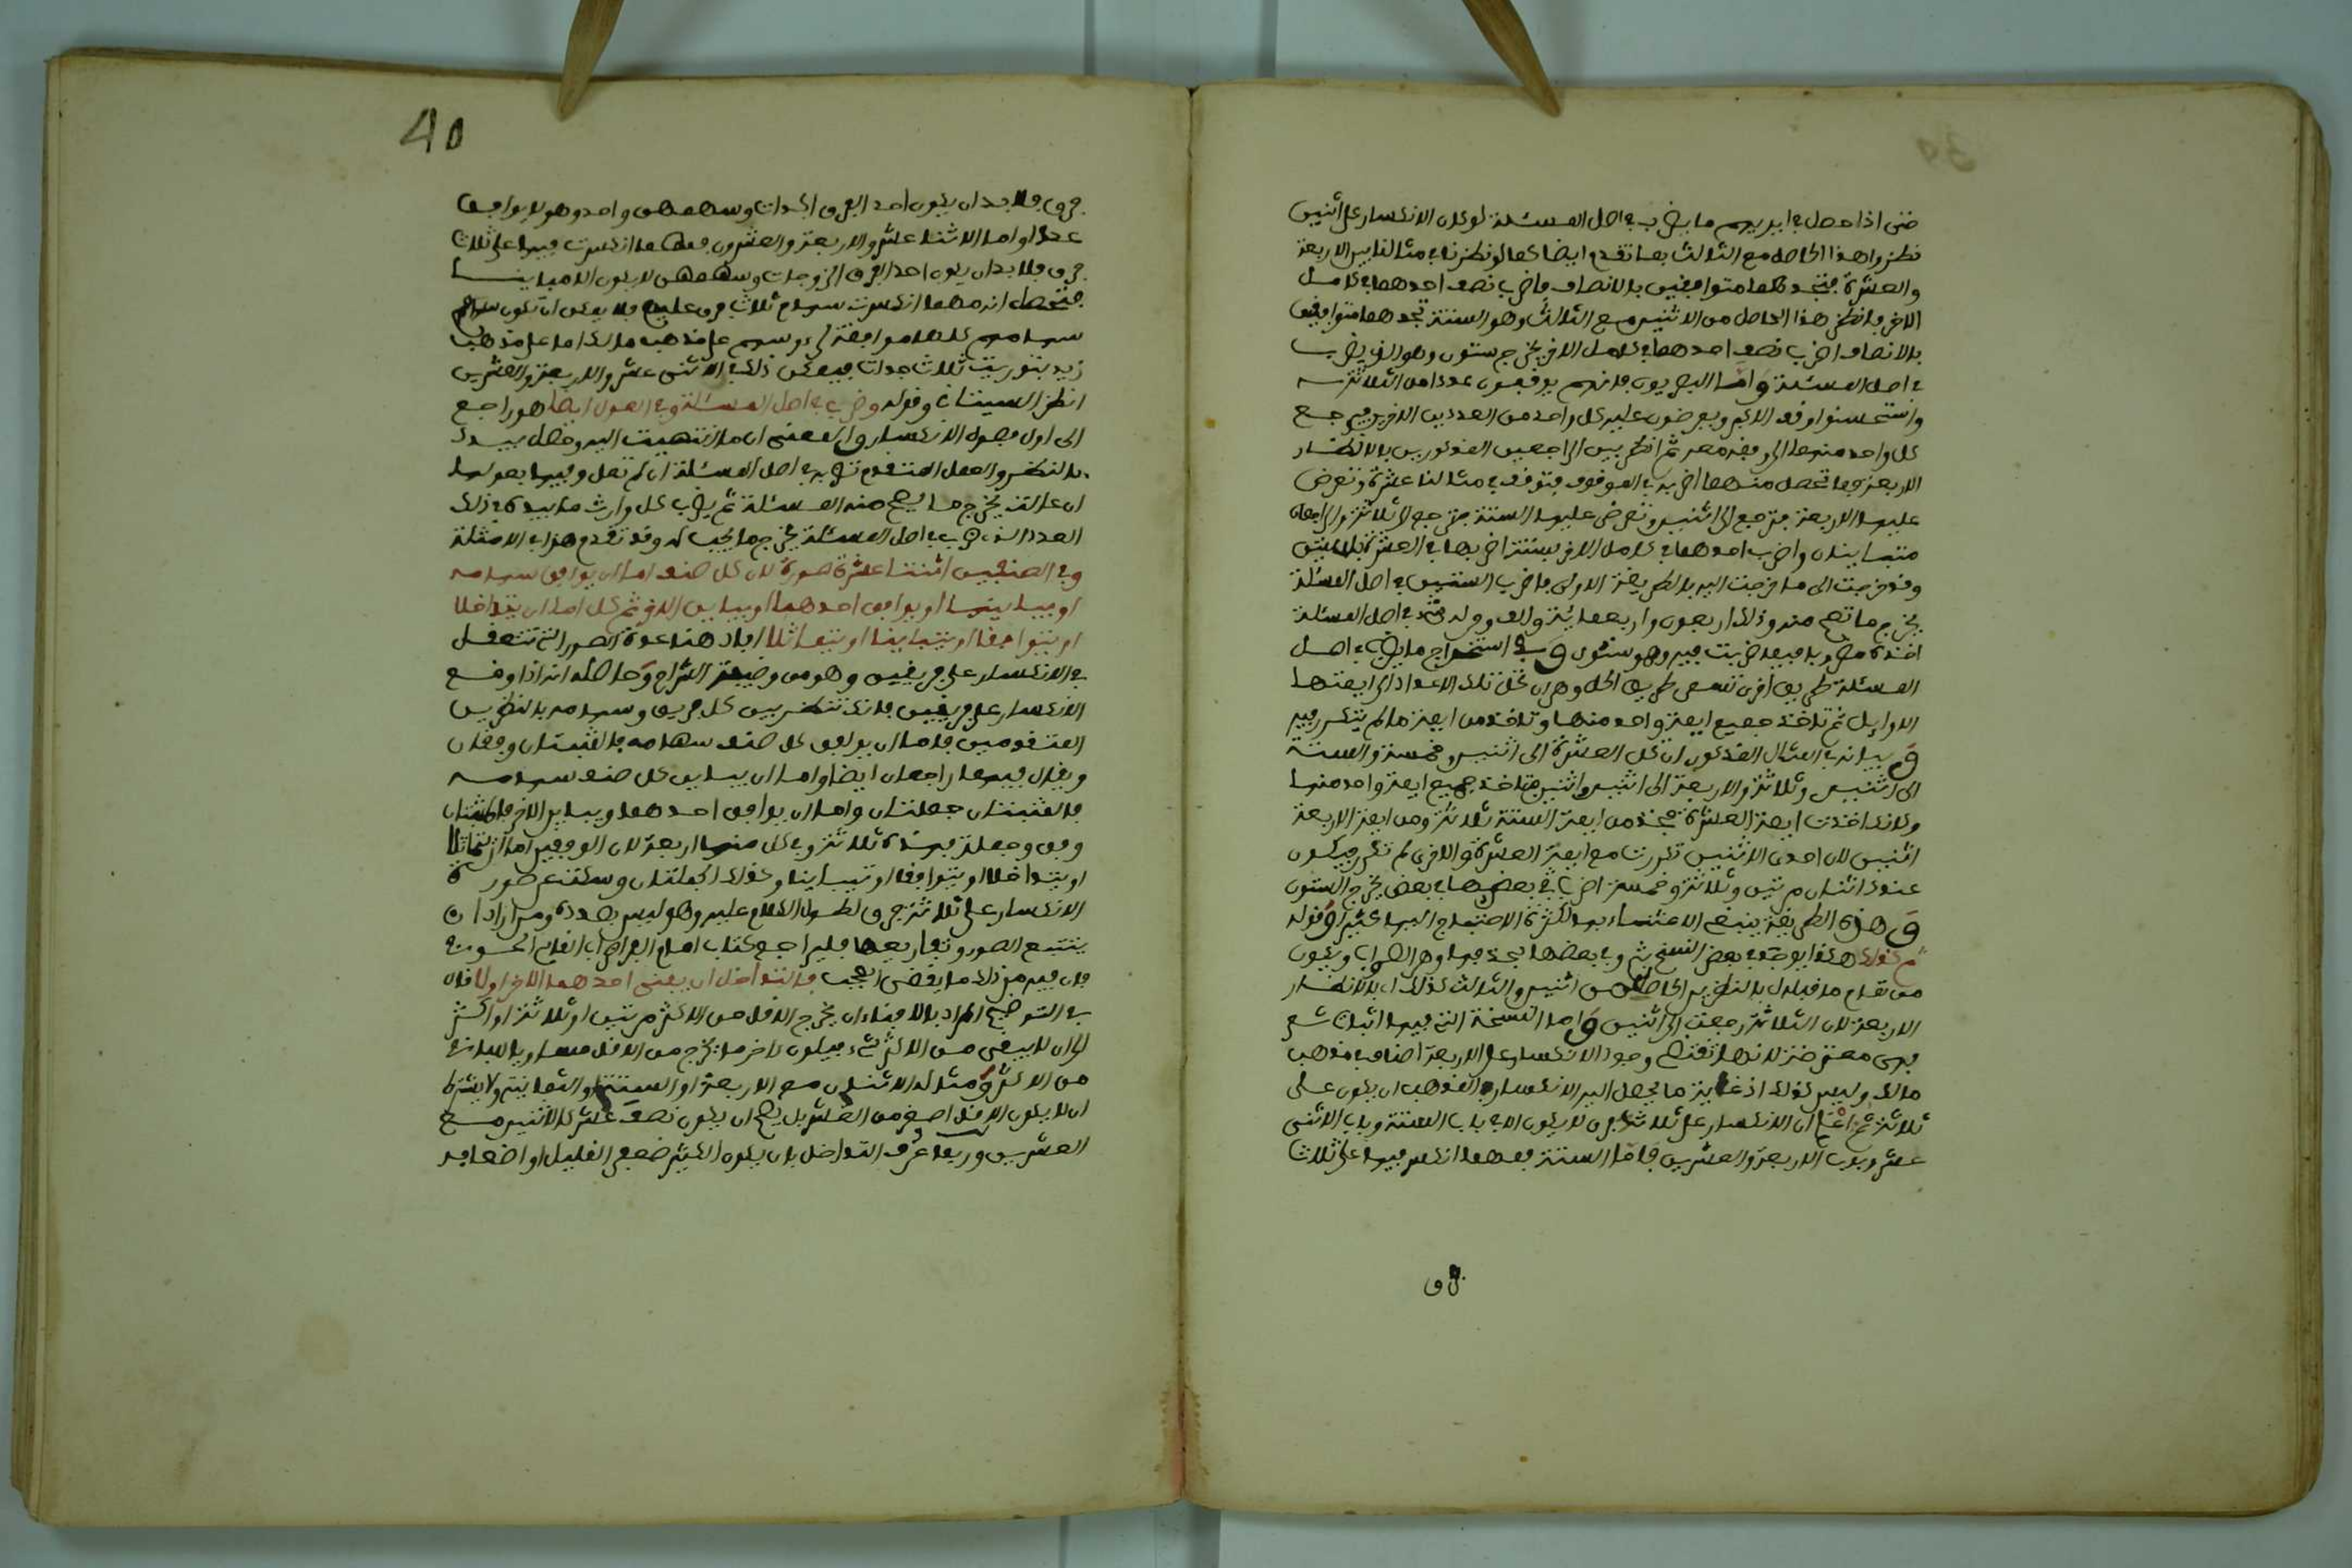 حتى اذا حصل في ايديهم ما يضرب في اصل المسئلة لو كان الانكسار على اثنين
نظروا هذا الحاصل مع الثالث بما تقدم ايضا كما لو نظرنا في مثالنا بين الاربعة
والعشرة فنجدهما متوافقين بالانصاف فاضرب نصف احدهما في كامل
الاخر فانظر هذا الحاصل من الاثنين مع الثالث وهو الستة تجدهما متوافقين
بالانصاف اضرب نصف احدهما في كامل الاخر يخرج ستون وهو الذي يضرب
في اصل المسئلة واما البصريون فانهم يوقفون عددا من الثلاثة
واستحسنوا وقف الاكبر ويعرضون عليه كل واحد من العددين الاخرين فيرجع
كل واحد منهما الى وفقه معه ثم انظر بين الراجعين المذكورين بالانظار
الاربعة وما تحصل منهما اضربه في الموقوف فتوقف في مثالنا عشرة وتعرض
عليها الاربعة فترجع الى اثنين وتعرض عليها الستة فترجع الى ثلاثة والراجعان
متباينان واضرب احدهما في كامل الاخر بستة اضربها في العشرة بستين
وقد خرجت الى ما خرجت اليه بالطريقة الاولى فاضرب الستين في اصل المسئلة
يخرج ما تصح منه وذلك اربعون واربعمائة والف وقوله في اصل المسئلة
اخذه مضروبا فيما ضربت فيه وهو ستون وفي استخراج ما يضرب في اصل
المسئلة طريق اخرى تسمى طريق الحل وهي ان تحل تلك الاعداد الى ايمتها
الاوايل ثم تاخذ جميع ايمة واحد منها وتاخذ من ايمة ما لم يتكرر فيه
وبيانه في المثال المذكور ان تحل العشرة الى اثنين وخمسة والستة
الى اثنين وثلاثة والاربعة الى اثنين واثنين فتاخذ جميع ايمة واحد منها
وكانك اخذت ايمة العشرة فتخذ من ايمة الستة ثلاثة ومن ايمة الاربعة
اثنين لان احدى الاثنين تكررت مع ايمة العشرة والاخرى لم تتكرر فيكون
عندك اثنان مرتين وثلاثة وخمسة اضرب بعضها في بعض يخرج الستون
وهذه الطريقة ينبغي الاعتناء بها لكثرة الاحتياج اليها كثيرا وقوله
ثم كذلك هكذا يوجد في بعض النسخ ثم وفي بعضها بحذفها وهو الصواب ويكون
من تمام ما قبله اي بالنظر بين الحاصل من اثنين والثالث كذلك اي بالانظار
الاربعة لان الثلاثة رجعت الى اثنين واما النسخة التي فيها اثبات ثم
فهي معترضة لانها تقتضي وجود الانكسار على الاربعة اصناف في مذهب
مالك وليس كذلك اذ غاية ما يصل اليه الانكسار في المذهب ان يكون على
ثلاثة ثم اعلم ان الانكسار على ثلاثة فرق لا يكون الا في باب الستة وباب الاثني
عشر وباب الاربعة والعشرين فاما الستة فمهما انكسر فيها على ثلاث
فرق
40
فرق فلا بد ان يكون احد الفرق الجدات وسهمهن واحد وهو لا يوافق
عددا واما الاثنا عشر والاربعة والعشرون فمهما انكسرت فيها على ثلاث
فرق فلا بد ان يكون احد الفرق الزوجات وسهمهن لا يكون الا مباينا
فتحصل انه مهما انكسرت سهام ثلاث فرق عليهم فلا يمكن ان تكون
سهامهم كلها موافقة لرءوسهم على مذهب مالك اما على مذهب
زيد بتوريث ثلاث جدات فيمكن ذلك في الاثني عشر والاربعة والعشرين
انظر السيتاني وقوله وضرب في اصل المسئلة وفي العول ايضا هو راجع
الى اول فصول الانكسار والمعنى ان ما انتهيت اليه وحصل بيدك
بالنظر والعمل المتقدم تضربه في اصل المسئلة ان لم تعل وفيها بعولها
ان عالت يخرج ما تصح منه المسئلة ثم يضرب كل وارث ما بيده في ذلك
العدد الذي ضرب في اصل المسئلة يخرج ما يجب له وقد تقدم هذا في الامثلة
وفي الصنفين اثنتا عشرة صورة لان كل صنف اما ان يوافق سهامه
او يباينها او يوافق احدهما او يباين الاخر ثم كل اما ان يتداخلا
او يتوافقا او يتباينا او يتماثلا افاد هنا عدة الصور التي تتعقل
في الانكسار على فريقين وهو من وظيفة الشراح وحاصله انه اذا وقع
الانكسار على فريقين فانك تنظر بين كل فريق وسهامه بالنظرين
المتقدمين فاما ان يوافق كل صنف سهامه فالمثبتان وفقان
ويقال فيهما راجعان ايضا واما ان يباين كل صنف سهامه
فالمثبتتان جملتان واما ان يوافق احدهما ويباين الاخر فالمثبتان
وفق وجملة فهذه ثلاثة وفي كل منها اربعة لان الوفقين اما ان يتماثلا
او يتداخلا او يتوافقا او يتباينا وكذلك الجملتان وسكت عن صور
الانكسار على ثلاثة فرق لطول الكلام عليه وهو ليس بصدده ومن اراد ان
يتتبع الصور وتفاريعها فليراجع كتاب امام الفراض ابي القاسم الحوفي
فان فيه من ذلك ما يقضى العجب فالتداخل ان يفنى احدهما الاخر اولا قال
في التوضيح المراد بالافناء ان يخرج الاقل من الاكثر مرتين او ثلاثة او اكثر
الى ان لا يبقى من الاكثر شيء فيكون اخر ما يخرج من الاقل مساويا للباقي
من الاكثر ومثاله الاثنان مع الاربعة او الستة او الثمانية ولا يشترط
ان لا يكون الاقل اصغر من العشر بل يصح ان يكون نصف عشر كالاثنين مع
العشرين وربما عرف التداخل بان يكون الكثير ضعف القليل او اضعافه